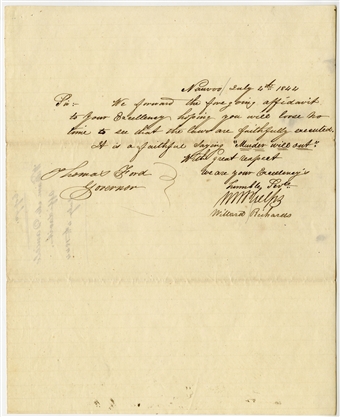 Nauvoo July 4th 1844
Sir: We forward the foregoing affidavit
to your Excellency hoping you will loose no
time to see that the laws are faithfully executed.
It is a faithful saying "Murder will out."
With great respect
we are your Excellency's
humble Svts
Thomas Ford
Governor
W W Phelps
Willard Richards